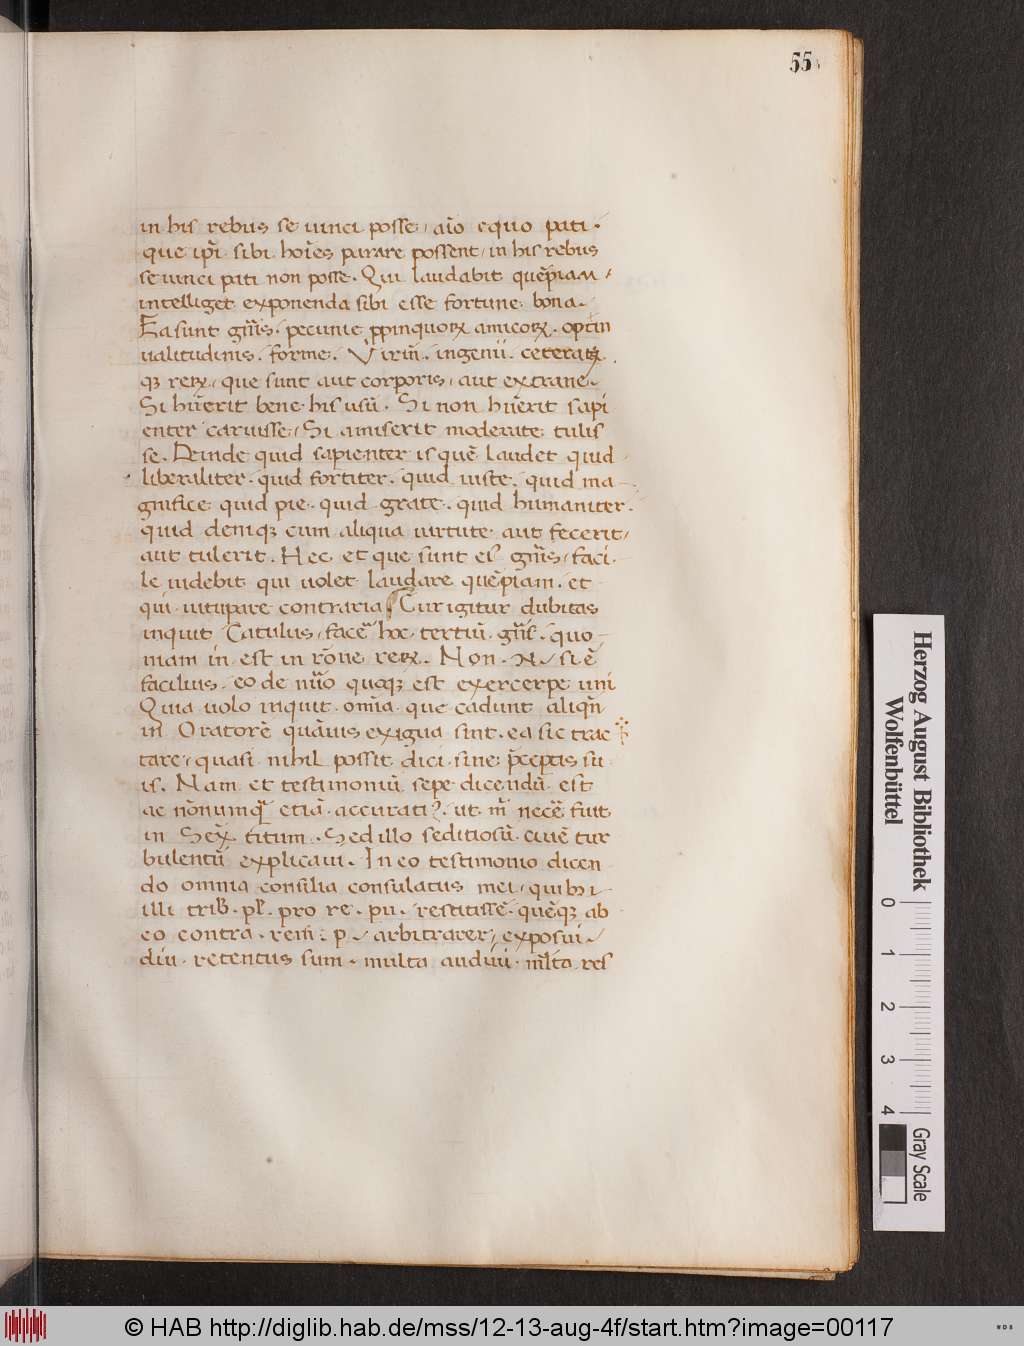 55
in his rebus se uinci posse, aīo equo pati.
que ip̄i sibi hoīes parare possent, in his rebus
se uinci pati non posse. Qui laudabit quēpiam,
intelliget exponenda sibi esse fortune bona.
Ea sunt gn̄is. pecunie ꝓpinquoꝝ amicoꝝ. opum
ualitudinis. forme. Viriū. ingenii. ceteraꝝ
qꝫ reꝝ, que sunt aut corporis, aut extranee.
Si hūerit bene his usū. Si non hūerit sapi
enter caruisse, Si amiserit moderate tulis
se. Deinde quid sapienter is quē laudet quid
liberaliter. quid fortiter. quid iuste. quid ma
gnifice quid pie. quid grate. quid humaniter.
quid deniqꝫ cum aliqua uirtute aut fecerit,
aut tulerit. Hec et que sunt eiꝰ gn̄is, faci
le uidebit qui uolet laudare quēpiam. et
qui uitupare contraria. Cur igitur dubitas
inquit Catulus, facē hoc tertiū gn̄s. quo
niam in est in rōne reꝝ. Non. N. si ē
facilius. eo de nūo quoqꝫ est exercerpe uni
Quia uolo inquit. omīa que cadunt aliqn̄
in Oratorē quāuis exigua sint. ea sic trac
tare, quasi nihil possit dici sine p̄ceptis su
is. Nam et testimoniū sepe dicendū est
ac nōnumqꝫ etiā accurati. ut m̄ necē fuit
in Sex̄ titum. Sed illo seditiosū ciuē tur
bulentū explicaui. In eo testimonio dicen
do omnia consilia consulatus mei, quibꝰ
illi trib̄. pl̄. pro re. pu. restitissē. quēqꝫ ab
eo contra. rem̄. p. arbitrarer, exposui.
diu. retentus sum. multa audiui. ml̄ta res
Herzog August Bibliothek
Wolfenbüttel
0 1 2 3 4
Gray Scale
© HAB http://diglib.hab.de/mss/12-13-aug-4f/start.htm?image=00117
WDB